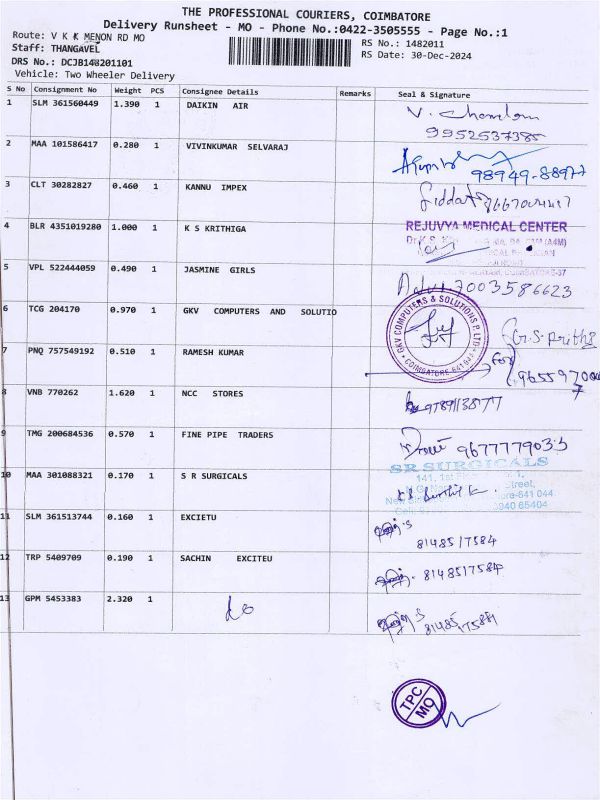 THE PROFESSIONAL COURIERS, COIMBATORE
Delivery Runsheet - MO - Phone No.:0422-3505555 - Page No.:1
Route: V K K MENON RD MO
RS No.: 1482011
Staff: THANGAVEL
RS Date: 30-Dec-2024
DRS No.: DCJB148201101
Vehicle: Two Wheeler Delivery
S No Consignment No Weight PCS Consignee Details Remarks Seal & Signature
1 SLM 361560449 1.390 1 DAIKIN AIR
9952537385
2 MAA 101586417 0.280 1 VIVINKUMAR SELVARAJ
98949-88977
3 CLT 30282827 0.460 1 KANNU IMPEX
4 BLR 4351019280 1.000 1 K S KRITHIGA
REJUVYA MEDICAL CENTER
5 VPL 522444059 0.490 1 JASMINE GIRLS
7003586623
6 TCG 204170 0.970 1 GKV COMPUTERS AND SOLUTIO
GKV COMPUTERS & SOLUTIONS P LTD
COIMBATORE
7 PNQ 757549192 0.510 1 RAMESH KUMAR
for
8 VNB 770262 1.620 1 NCC STORES
9789113877
9 TMG 200684536 0.570 1 FINE PIPE TRADERS
9677779033
10 MAA 301088321 0.170 1 S R SURGICALS
SR SURGICALS
11 SLM 361513744 0.160 1 EXCIETU
8148517584
12 TRP 5409709 0.190 1 SACHIN EXCITEU
8148517584
13 GPM 5453383 2.320 1
TPC
MO